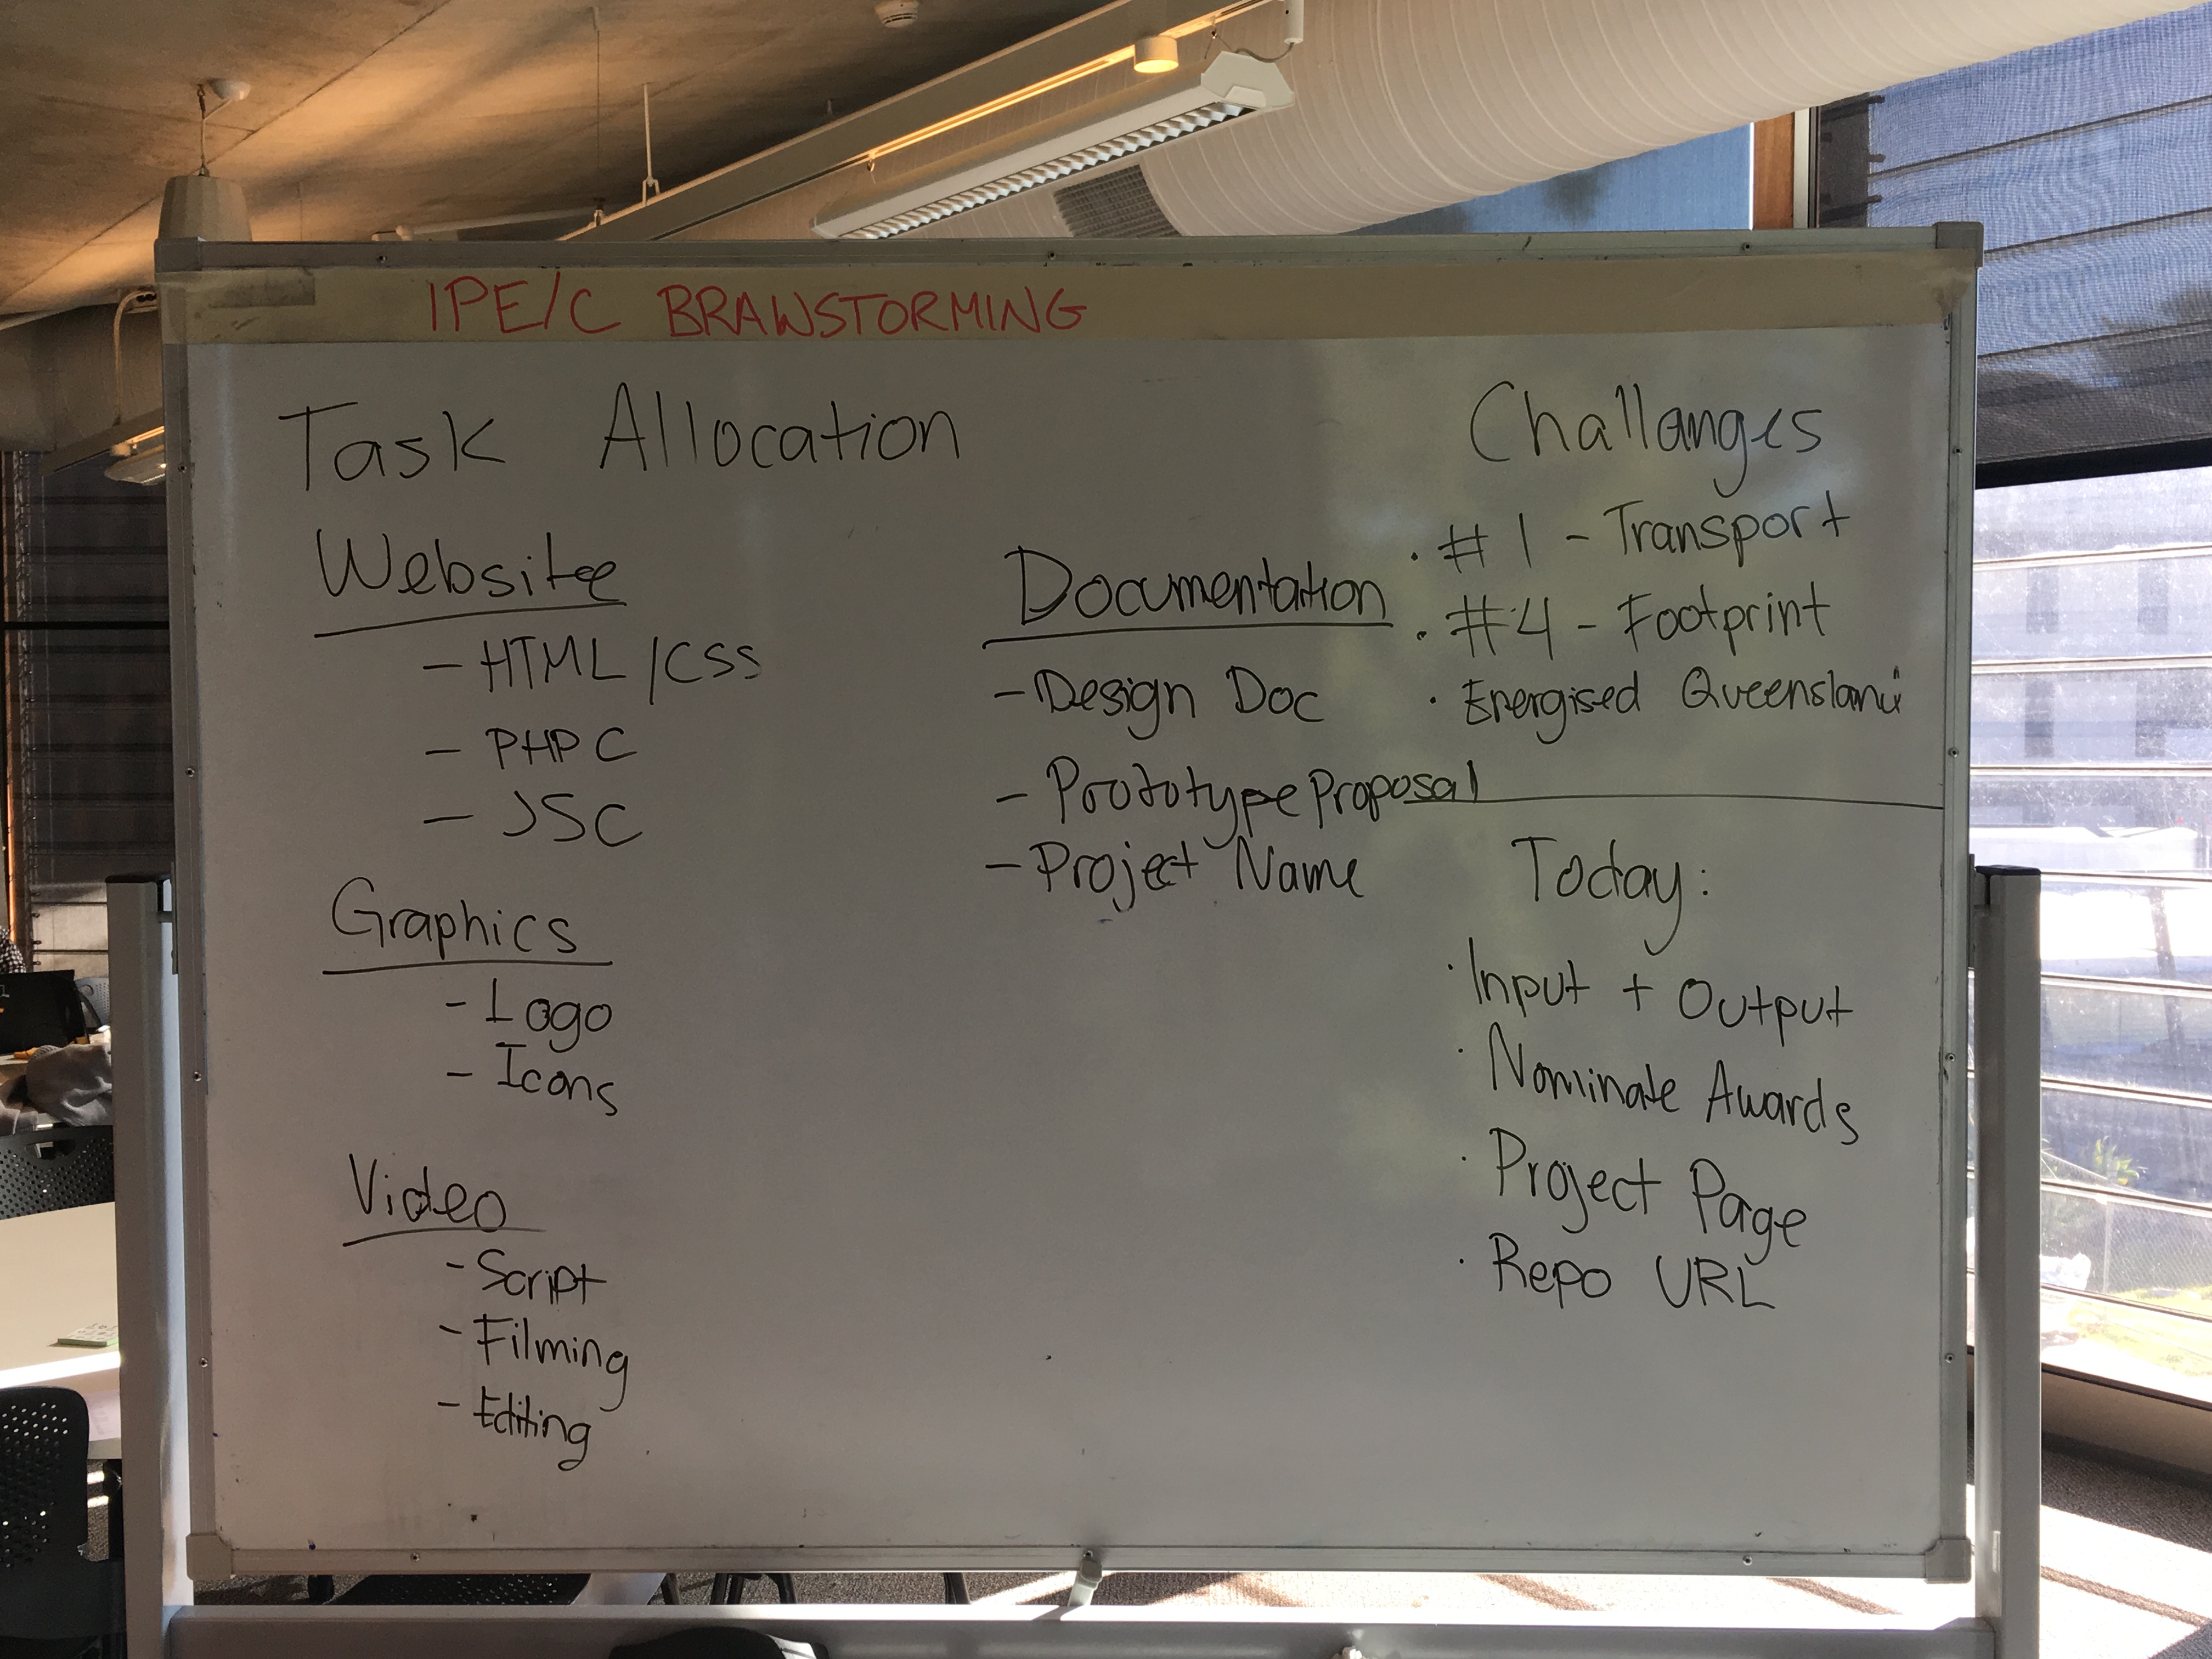 IPE/C BRAINSTORMING
Task Allocation
Website
- HTML/CSS
- PHP C
- JSC
Graphics
- Logo
- Icons
Video
- Script
- Filming
- Editing
Documentation
- Design Doc
- Prototype Proposal
- Project Name
Challanges
· #1 - Transport
· #4 - Footprint
· Energised Queensland
Today:
· Input + Output
· Nominate Awards
· Project Page
· Repo URL